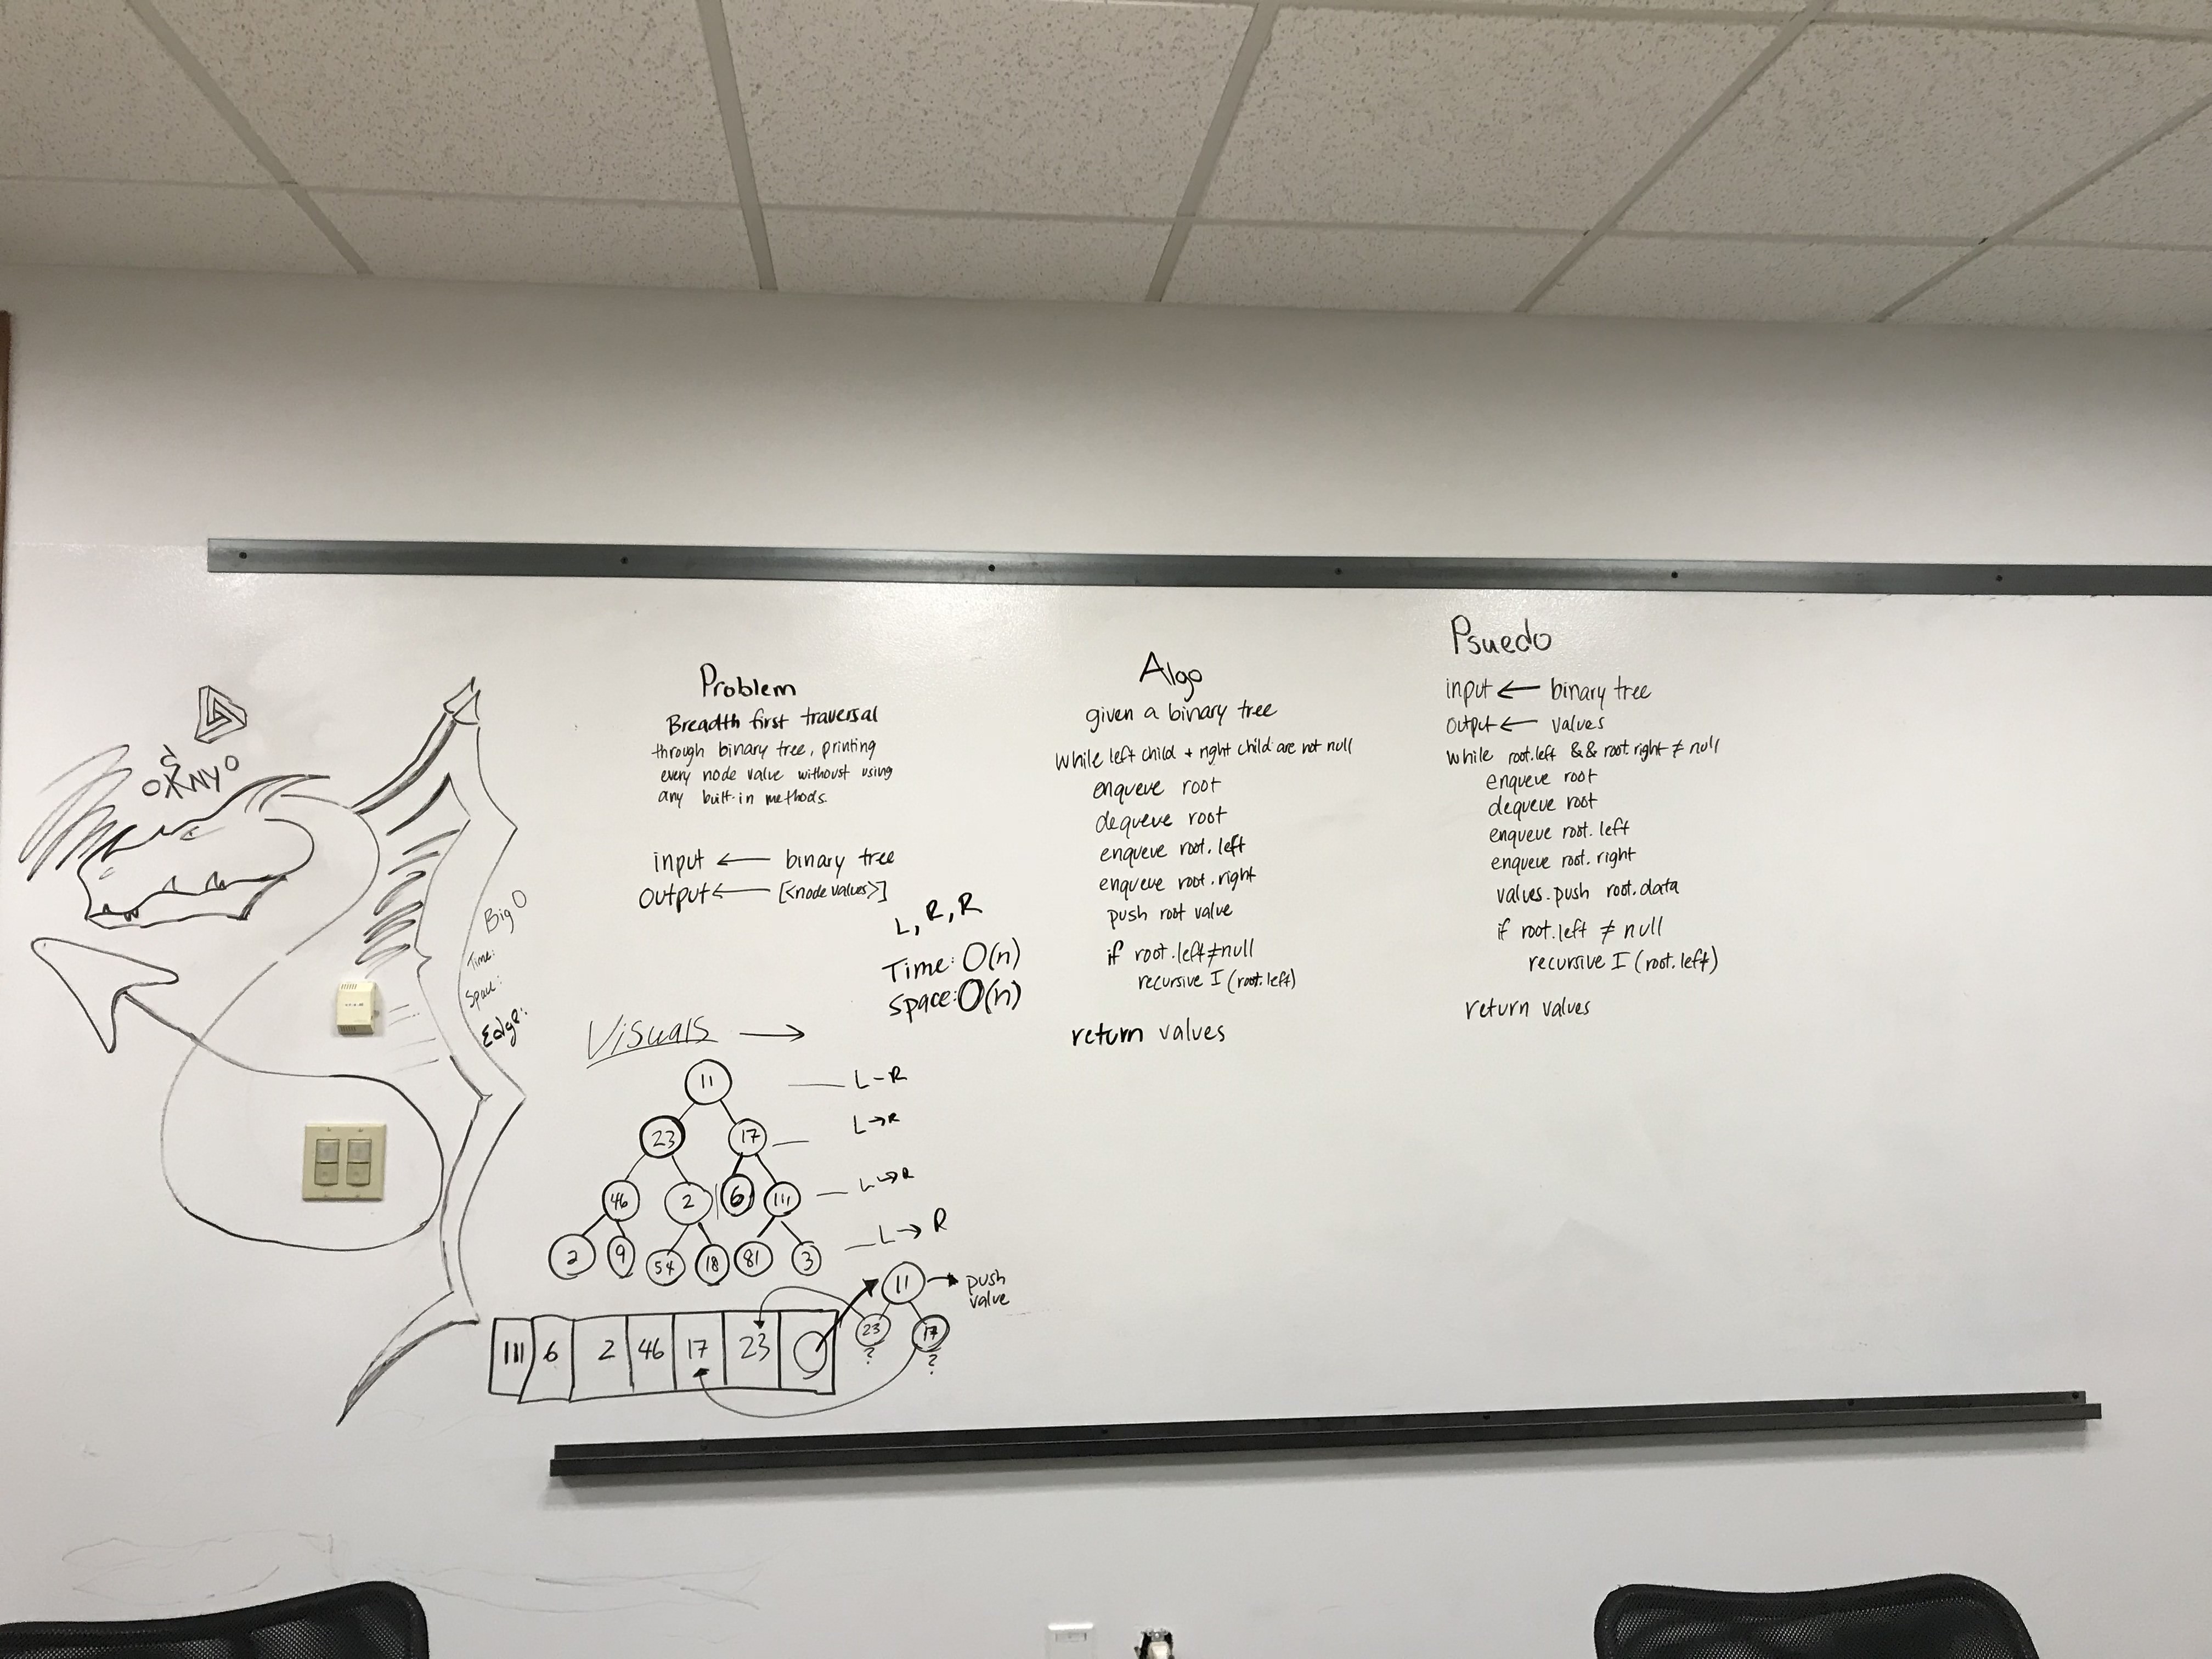 Problem
Breadth first traversal
through binary tree, printing
every node value without using
any built-in methods.
input ← binary tree
Output ← [<node values>]
L, R, R
Time: O(n)
Space: O(n)
Big O
Time:
Space:
Edge:
Visuals →
11
L-R
23 17
L→R
46 2 6 111
L→R
2 9 54 18 81 3
L→R
111 6 2 46 17 23
11 → push
value
23 17
? ?
Algo
given a binary tree
while left child + right child are not null
enqueue root
dequeue root
enqueue root.left
enqueue root.right
push root value
if root.left ≠ null
recursive I (root.left)
return values
Psuedo
input ← binary tree
Output ← values
while root.left && root.right ≠ null
enqueue root
dequeue root
enqueue root.left
enqueue root.right
values.push root.data
if root.left ≠ null
recursive I (root.left)
return values